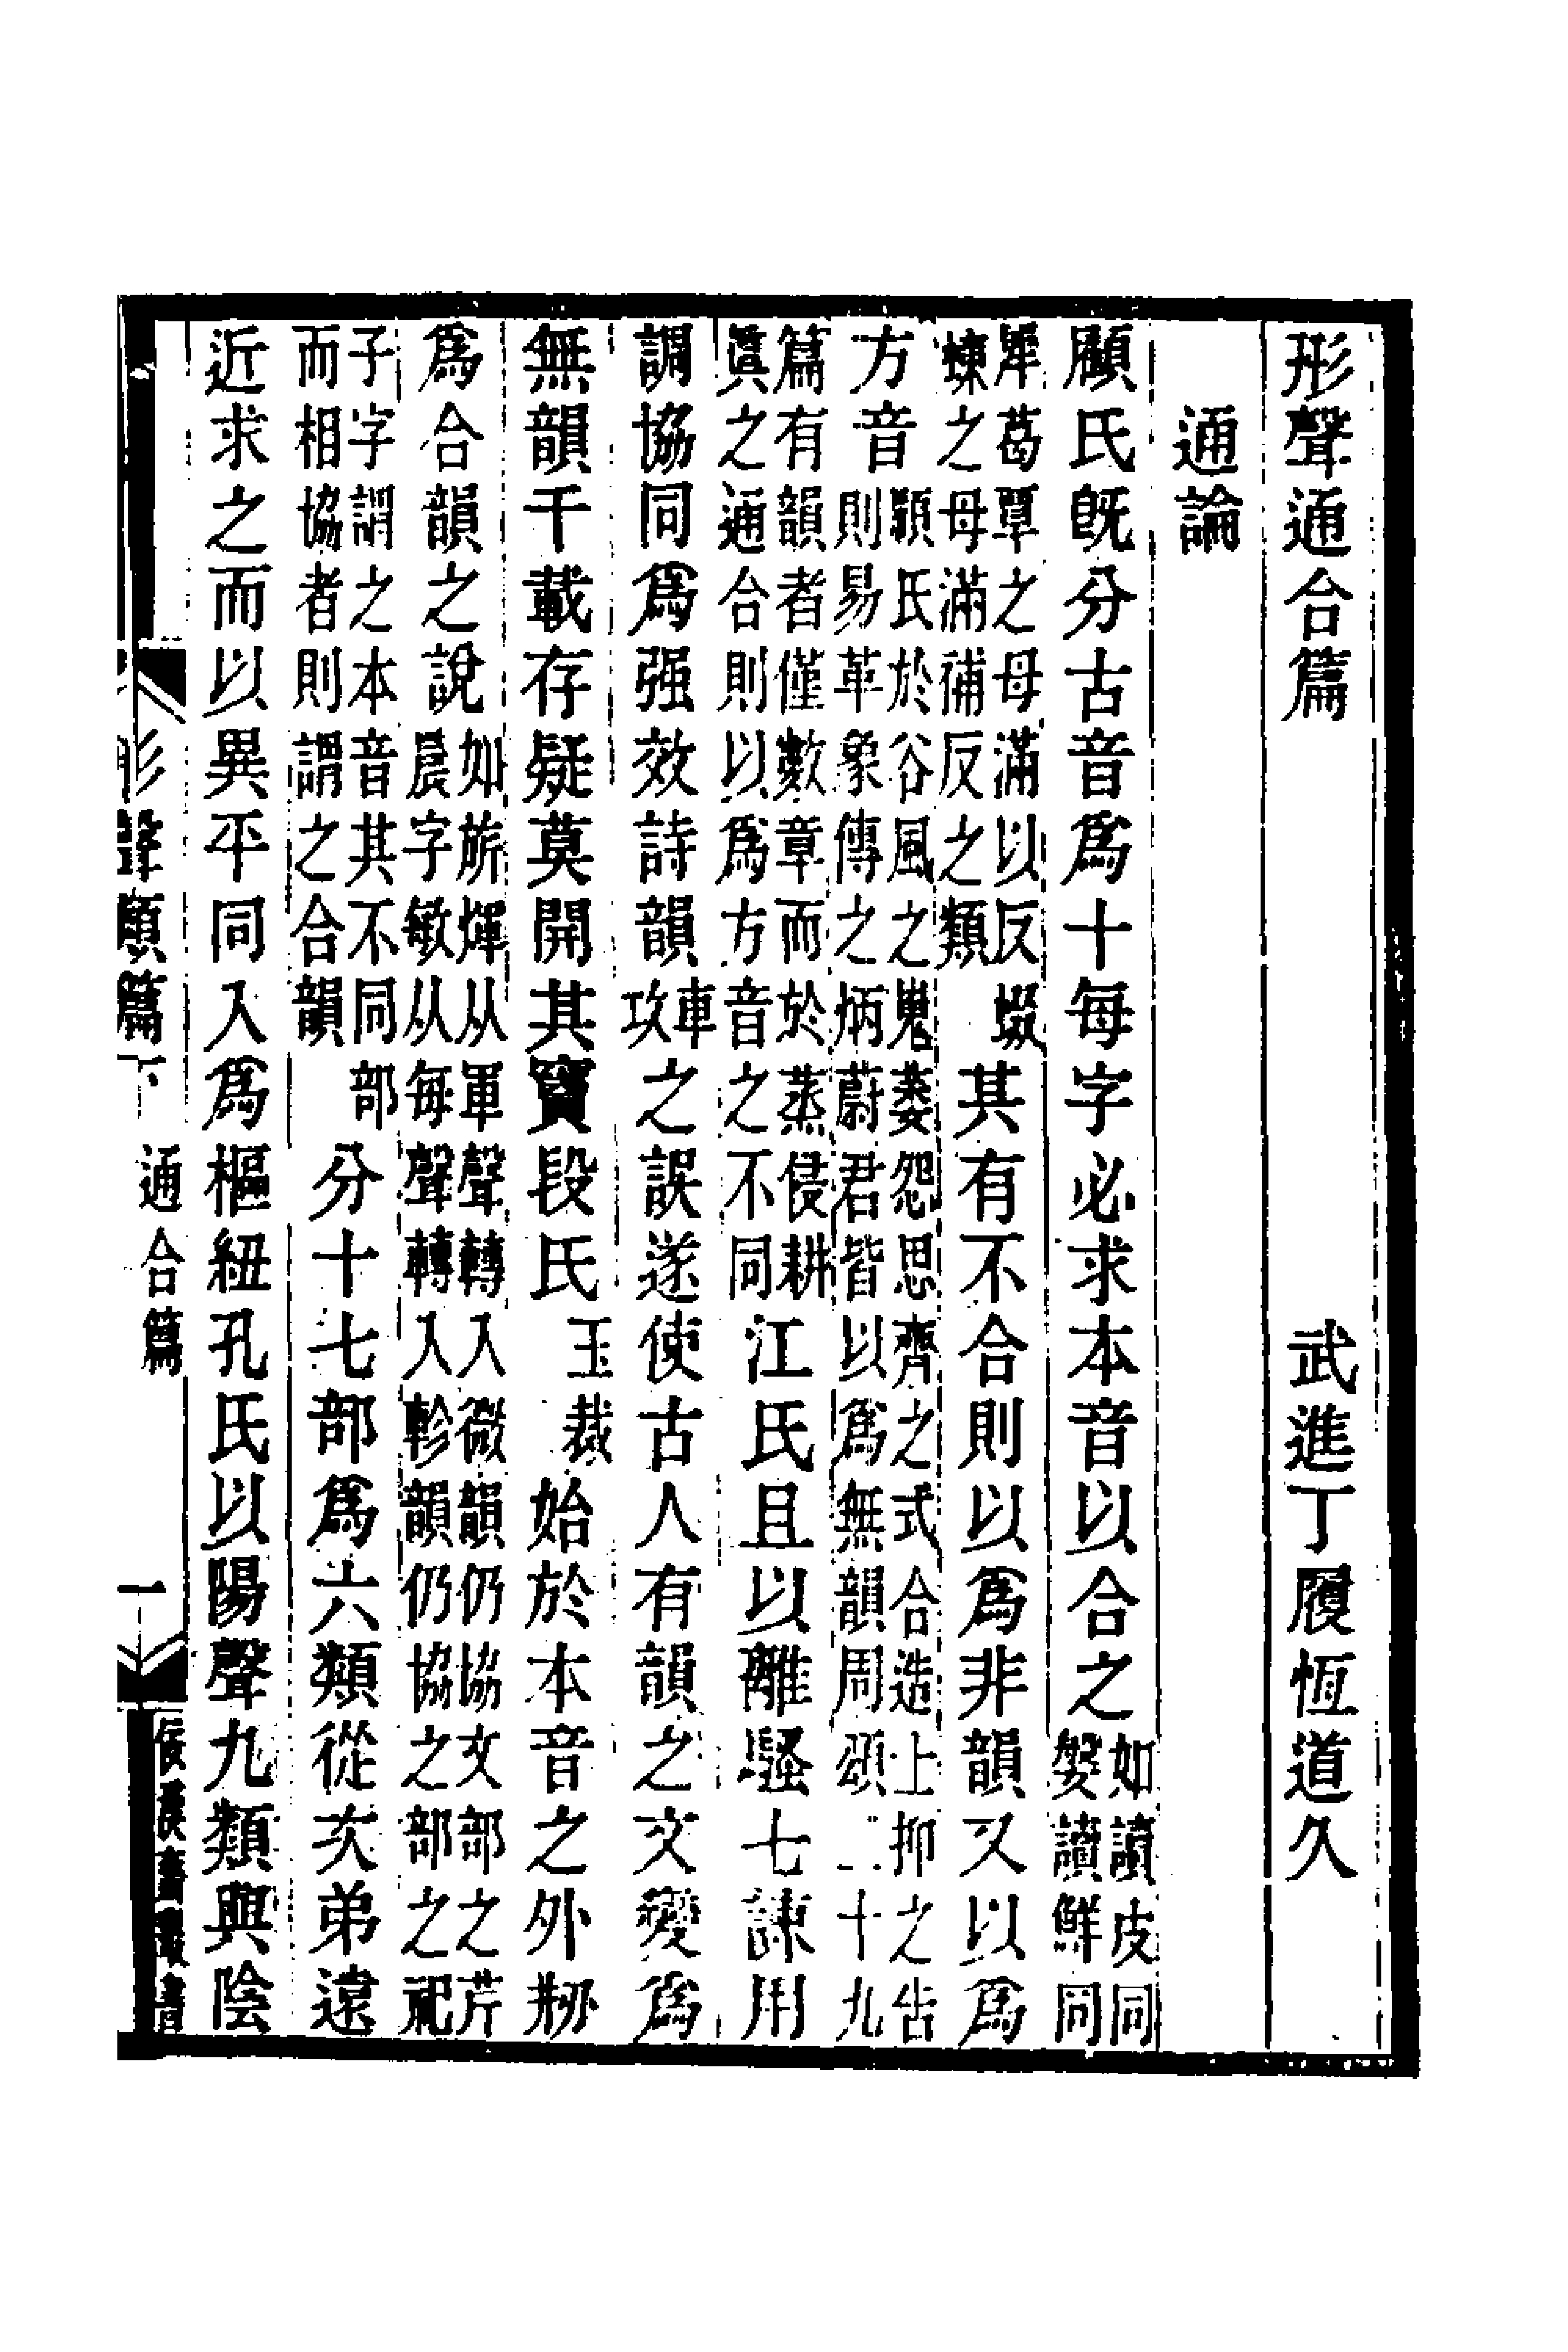 形聲通合篇　武進丁履恆道久
通論
顧氏旣分古音爲十每字必求本音以合之如讀皮同
媻讀鮮同
犀葛覃之母滿以反蝃
蝀之母滿補反之類其有不合則以爲非韻又以爲
方音顧氏於谷風之嵬萎怨思齊之式合造上抑之告
則易革象傳之炳蔚君皆以爲無韻周頌二十九
篇有韻者僅數章而於蒸侵耕
眞之通合則以爲方音之不同江氏且以離騷七諫用
調協同爲强效詩韻車攻之誤遂使古人有韻之文變爲
無韻千載存疑莫開其竇段氏玉裁始於本音之外剏
爲合韻之說如旂煇从軍聲轉入微韻仍協文部之芹
晨字敏从每聲轉入軫韻仍協之部之祀
子字謂之本音其不同部
而相協者則謂之合韻分十七部爲六類從次弟遠
近求之而以異平同入爲樞紐孔氏以陽聲九類與陰
形聲類篇下　通合篇　一